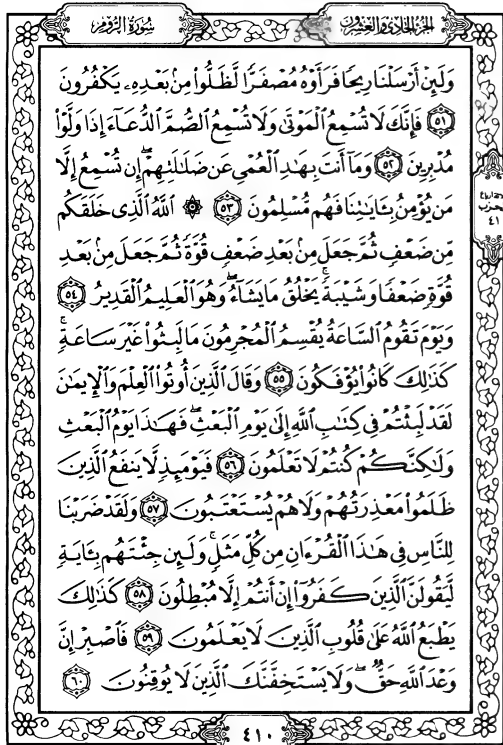 الجزء الحادي والعشرون
سورة الروم
وَلَئِنْ أَرْسَلْنَا رِيحًا فَرَأَوْهُ مُصْفَرًّا لَّظَلُّوا۟ مِنۢ بَعْدِهِۦ يَكْفُرُونَ
﴿٥١﴾ فَإِنَّكَ لَا تُسْمِعُ ٱلْمَوْتَىٰ وَلَا تُسْمِعُ ٱلصُّمَّ ٱلدُّعَآءَ إِذَا وَلَّوْا۟
مُدْبِرِينَ ﴿٥٢﴾ وَمَآ أَنتَ بِهَٰدِ ٱلْعُمْىِ عَن ضَلَٰلَتِهِمْ ۖ إِن تُسْمِعُ إِلَّا
مَن يُؤْمِنُ بِـَٔايَٰتِنَا فَهُم مُّسْلِمُونَ ﴿٥٣﴾ ۞ ٱللَّهُ ٱلَّذِى خَلَقَكُم
مِّن ضَعْفٍ ثُمَّ جَعَلَ مِنۢ بَعْدِ ضَعْفٍ قُوَّةً ثُمَّ جَعَلَ مِنۢ بَعْدِ
قُوَّةٍ ضَعْفًا وَشَيْبَةً ۚ يَخْلُقُ مَا يَشَآءُ ۖ وَهُوَ ٱلْعَلِيمُ ٱلْقَدِيرُ ﴿٥٤﴾
وَيَوْمَ تَقُومُ ٱلسَّاعَةُ يُقْسِمُ ٱلْمُجْرِمُونَ مَا لَبِثُوا۟ غَيْرَ سَاعَةٍ ۚ
كَذَٰلِكَ كَانُوا۟ يُؤْفَكُونَ ﴿٥٥﴾ وَقَالَ ٱلَّذِينَ أُوتُوا۟ ٱلْعِلْمَ وَٱلْإِيمَٰنَ
لَقَدْ لَبِثْتُمْ فِى كِتَٰبِ ٱللَّهِ إِلَىٰ يَوْمِ ٱلْبَعْثِ ۖ فَهَٰذَا يَوْمُ ٱلْبَعْثِ
وَلَٰكِنَّكُمْ كُنتُمْ لَا تَعْلَمُونَ ﴿٥٦﴾ فَيَوْمَئِذٍ لَّا يَنفَعُ ٱلَّذِينَ
ظَلَمُوا۟ مَعْذِرَتُهُمْ وَلَا هُمْ يُسْتَعْتَبُونَ ﴿٥٧﴾ وَلَقَدْ ضَرَبْنَا
لِلنَّاسِ فِى هَٰذَا ٱلْقُرْءَانِ مِن كُلِّ مَثَلٍ ۚ وَلَئِن جِئْتَهُم بِـَٔايَةٍ
لَّيَقُولَنَّ ٱلَّذِينَ كَفَرُوٓا۟ إِنْ أَنتُمْ إِلَّا مُبْطِلُونَ ﴿٥٨﴾ كَذَٰلِكَ
يَطْبَعُ ٱللَّهُ عَلَىٰ قُلُوبِ ٱلَّذِينَ لَا يَعْلَمُونَ ﴿٥٩﴾ فَٱصْبِرْ إِنَّ
وَعْدَ ٱللَّهِ حَقٌّ ۖ وَلَا يَسْتَخِفَّنَّكَ ٱلَّذِينَ لَا يُوقِنُونَ ﴿٦٠﴾
حزب
٤١
٤١٠